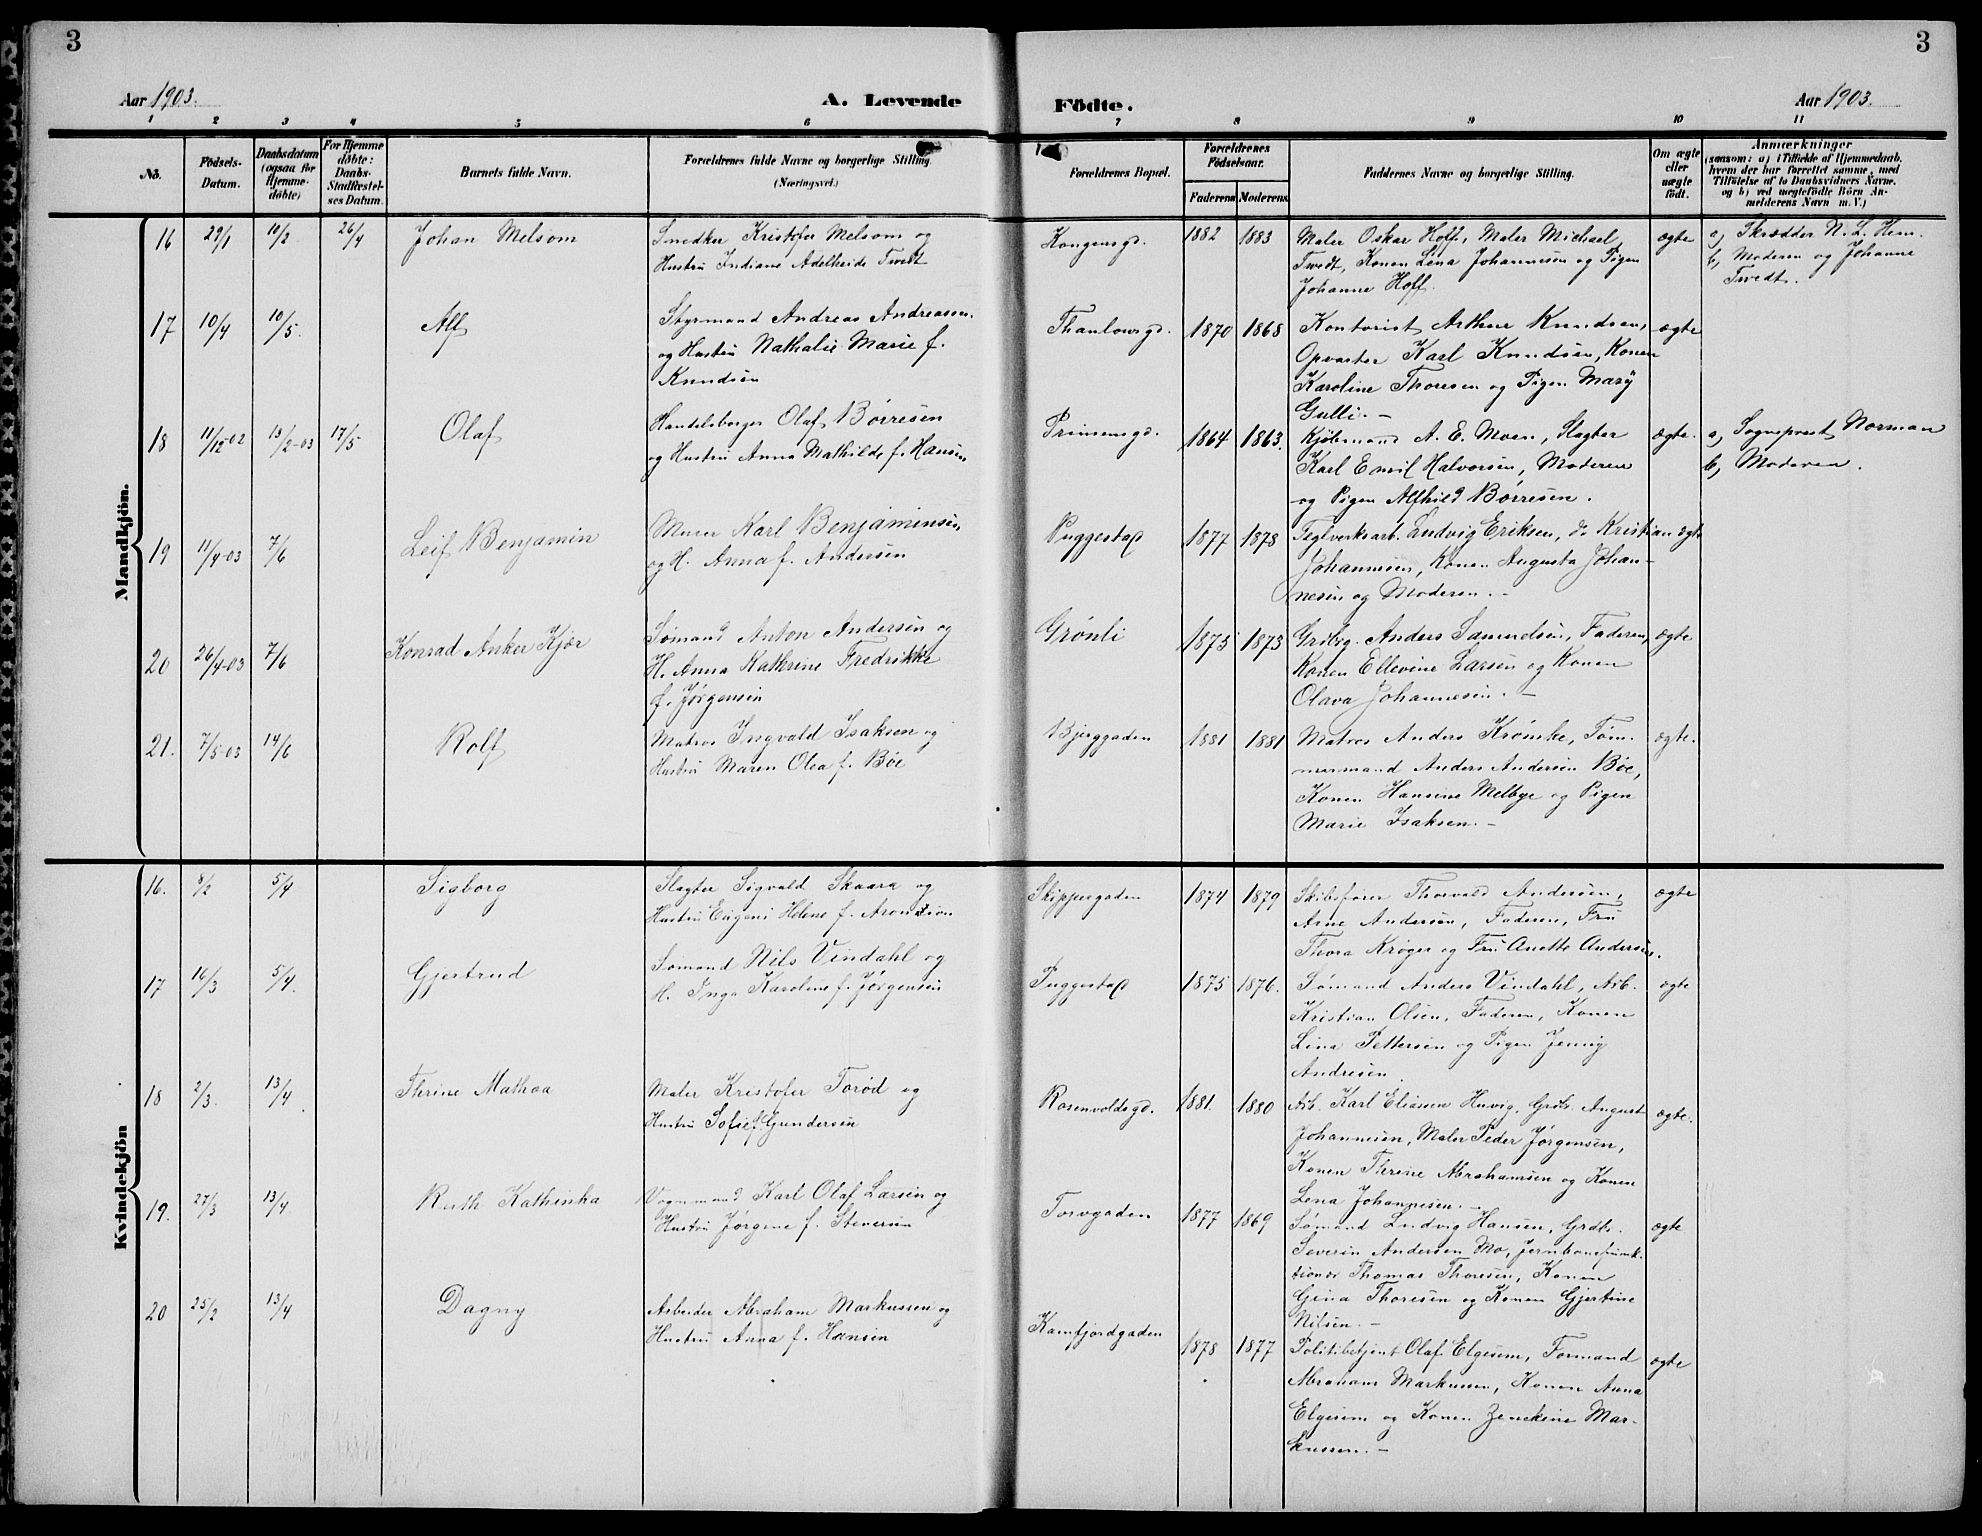 3
3
Aar 1903.
A. Levende
Födte.
Aar 1903.
1 2 3 4 5 6 7 8 9 10 11
No.
Födsels-Datum.
Daabsdatum (ogsaa for Hjemmedöbte)
For Hjemmedöbte: Daabs-Stadfæstelses Datum.
Barnets fulde Navn.
Forældrenes fulde Navne og borgerlige Stilling.
(Næringsvei.)
Forældrenes Bopæl.
Forældrenes Födselsaar.
Faderens Moderens
Faddernes Navne og borgerlige Stilling.
Om ægte eller uægte födt.
Anmærkninger
(saasom: a) i Tilfælde af Hjemmedaab, hvem der har forrettet samme, med Tilföielse af to Daabsvidners Navne, og b) ved uægtefödte Börn Anmelderens Navn m. V.)
Mandkjön.
16 29/1 10/2 26/4 Johan Melsom
Smedker Kristofer Melsom og
Hustru Indiane Adelheide Tvedt
Kongensgd. 1882 1883
Maler Oskar Hoff, Maler Michael
Tvedt, Konen Lina Johannesen og Pigen
Johanne Hoff.
ægte
a, Skrædder N. L. Hem.
b, Moderen og Johanne
Tvedt.
17 10/4 10/5. Alf
Styrmand Andreas Andreassen
og Hustru Nathalie Marie f.
Knudsen
Thaulowsgd. 1870 1868
Kontorist Arthur Knudsen,
Opvarter Karl Knudsen, Konen
Karoline Thoresen og Pigen Mary
Gulli. –
ægte
18 11/12-02 13/2-03 17/5 Olaf
Handelsborger Olaf Børresen
og Hustru Anna Mathilde f. Hansen
Prinsensgd. 1864 1863.
Kjøbmand A. E. Moen, Slagter
Karl Emil Halvorsen, Moderen
og Pigen Alfhild Børresen.
ægte.
a, Sogneprest Norman
b, Moderen.
19 11/4-03 7/6 Leif Benjamin
Murer Karl Benjaminsen
og H. Anna f. Andersen
Puggestad 1877 1878
Teglverksarb. Ludvig Eriksen, do Kristian
Johannesen, Konen Augusta Johan-
nesen og Moderen. –
ægte
20 26/4-03 7/6 Konrad Anker Kjær
Sømand Anton Andersen og
H. Anna Kathrine Fredrikke
f. Jørgensen
Grønli 1875 1873
Grdbrg. Anders Samuelsen, Faderen,
Konen Ellevine Larsen og Konen
Olava Johannesen. –
ægte
21. 7/5-03 14/6 Rolf
Matros Ingvald Isaksen og
Hustru Maren Olea f. Bøe
Bjerggaden 1881 1881
Matros Anders Krømke, Tøm-
mermand Anders Andersen Bøe,
Konen Hansine Melbye og Pigen
Marie Isaksen. –
ægte.
Kvindekjön
16. 8/2 5/4 Sigborg
Slagter Sigvald Skaara og
Hustru Eugeni Helene f. Aronsson
Skippergaden 1874 1879
Skibsfører Thorvald Andersen,
Arne Andersen, Faderen, Fru
Thora Krøger og Fru Anette Andersen.
ægte
17 16/3 5/4. Gjertrud
Sømand Nils Vindahl og
H. Inga Karoline f. Jørgensen
Puggestad 1875 1876.
Sømand Anders Vindahl, Arb.
Kristian Olsen, Faderen, Konen
Lina Pettersen og Pigen Jenny
Andresen
ægte
18 2/3. 13/4 Thrine Mathea
Maler Kristofer Torød og
Hustru Sofie f. Gundersen
Rosenvoldsgd. 1881. 1880
Arb. Karl Eliasen Huvig, Grdb. August
Johannesen, Maler Peder Jørgensen,
Konen Threne Abrahamsen og Konen
Lena Johannesen. –
ægte.
19. 27/3 13/4 Ruth Kathinka
Vognmand Karl Olaf Larsen og
Hustru Jørgine f. Steversen
Torvgaden 1877 1869
Sømand Ludvig Hansen, Grdb.
Severin Andersen Mo, Jernbanefunk-
tionær Thomas Thoresen, Konen
Gina Thoresen og Konen Gjertine
Nilsen. –
ægte
20 25/2 13/4 Dagny
Arbeider Abraham Markussen og
Hustru Anna f. Hansen
Kamfjordgaden 1878 1877
Politibetjent Olaf Elgesem, Formand
Abraham Markussen, Konen Anna
Elgesem og Konen Zenekine Mar-
kussen. –
ægte